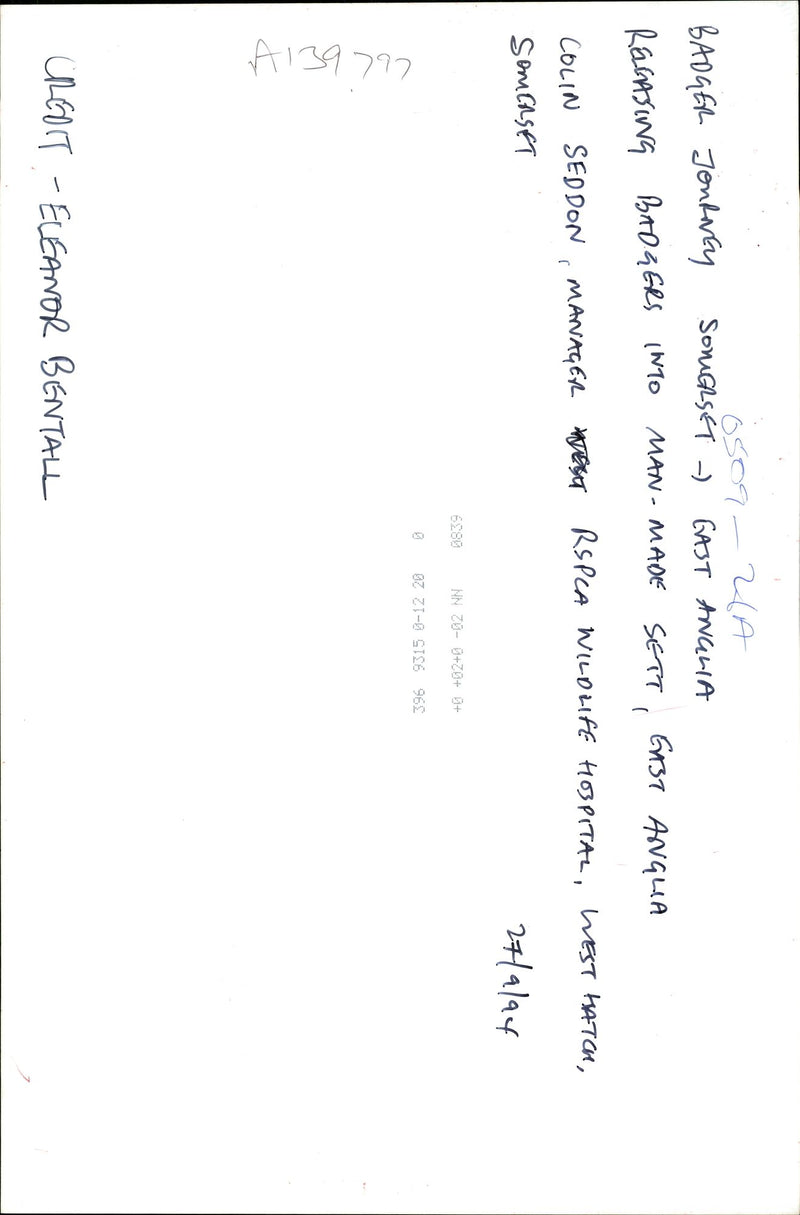 BADGER JOURNEY SOMERSET → EAST ANGLIA
0509-2(A
RELEASING BADGERS INTO MAN-MADE SETT, EAST ANGLIA
COLIN SEDDON, MANAGER RSPCA WILDLIFE HOSPITAL, WEST HATCH,
SOMERSET
27/9/94
+0 +02+0 -02 NN 0839
396 9315 0-12 20 0
A139797
CREDIT - ELEANOR BENTALL